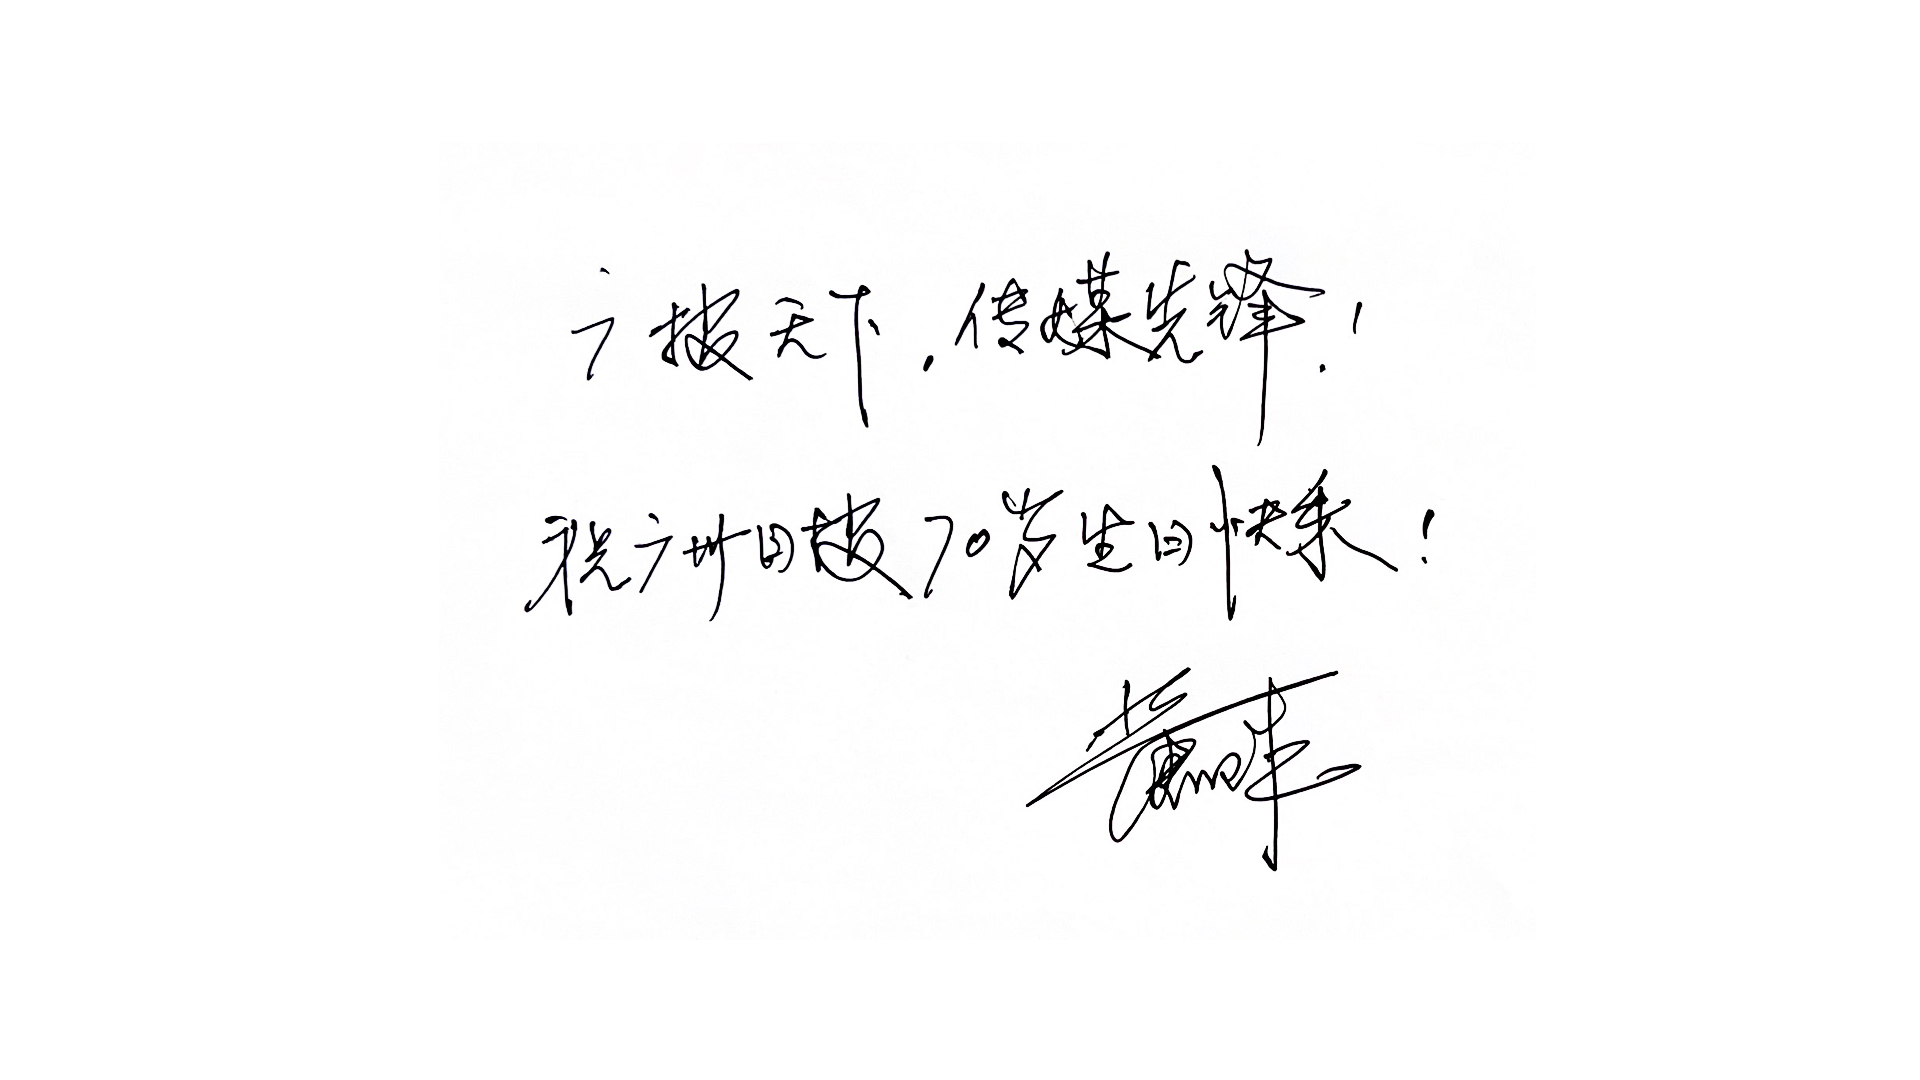 广报天下，传媒先锋！
祝广州日报70岁生日快乐！